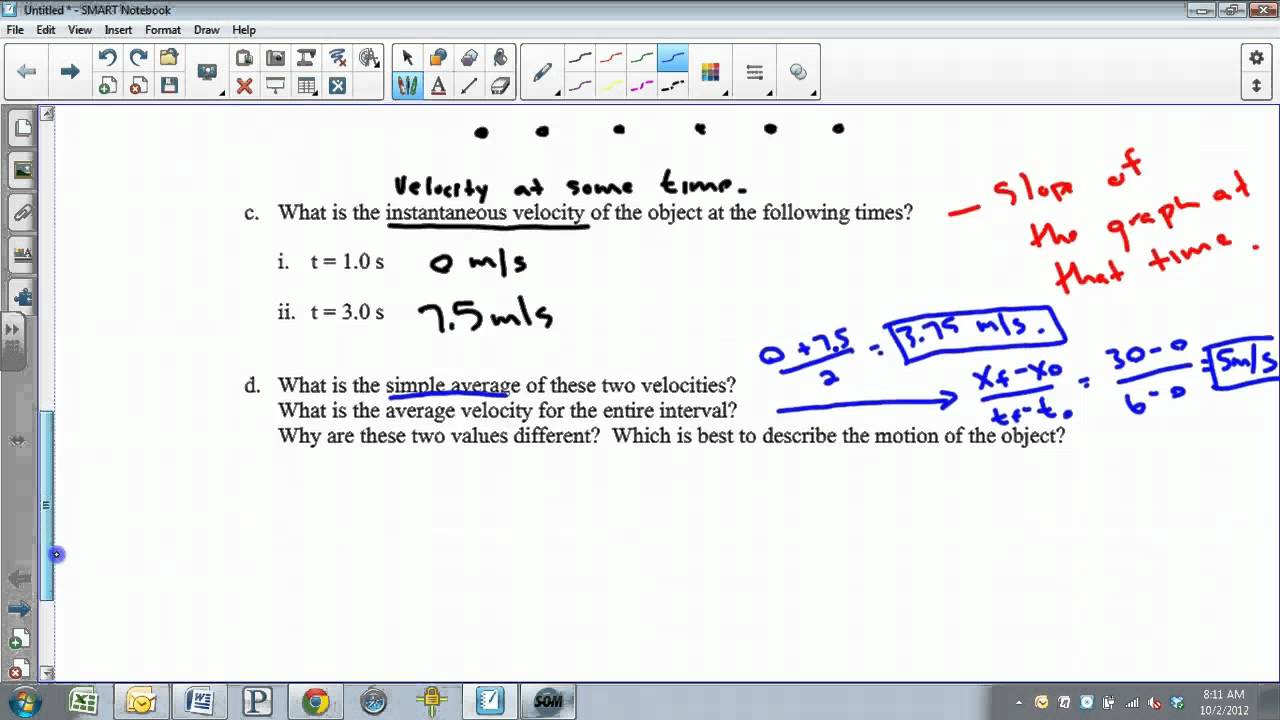 Untitled * - SMART Notebook
File Edit View Insert Format Draw Help
Velocity at some time.
c. What is the instantaneous velocity of the object at the following times?
— slope of
the graph at
that time.
i. t = 1.0 s 0 m/s
ii. t = 3.0 s 7.5 m/s
0 + 7.5 / 2 = 3.75 m/s.
d. What is the simple average of these two velocities?
What is the average velocity for the entire interval?
xf - x0 / tf - t0 = 30 - 0 / 6 - 0 = 5 m/s
Why are these two values different? Which is best to describe the motion of the object?
SOM
8:11 AM
10/2/2012